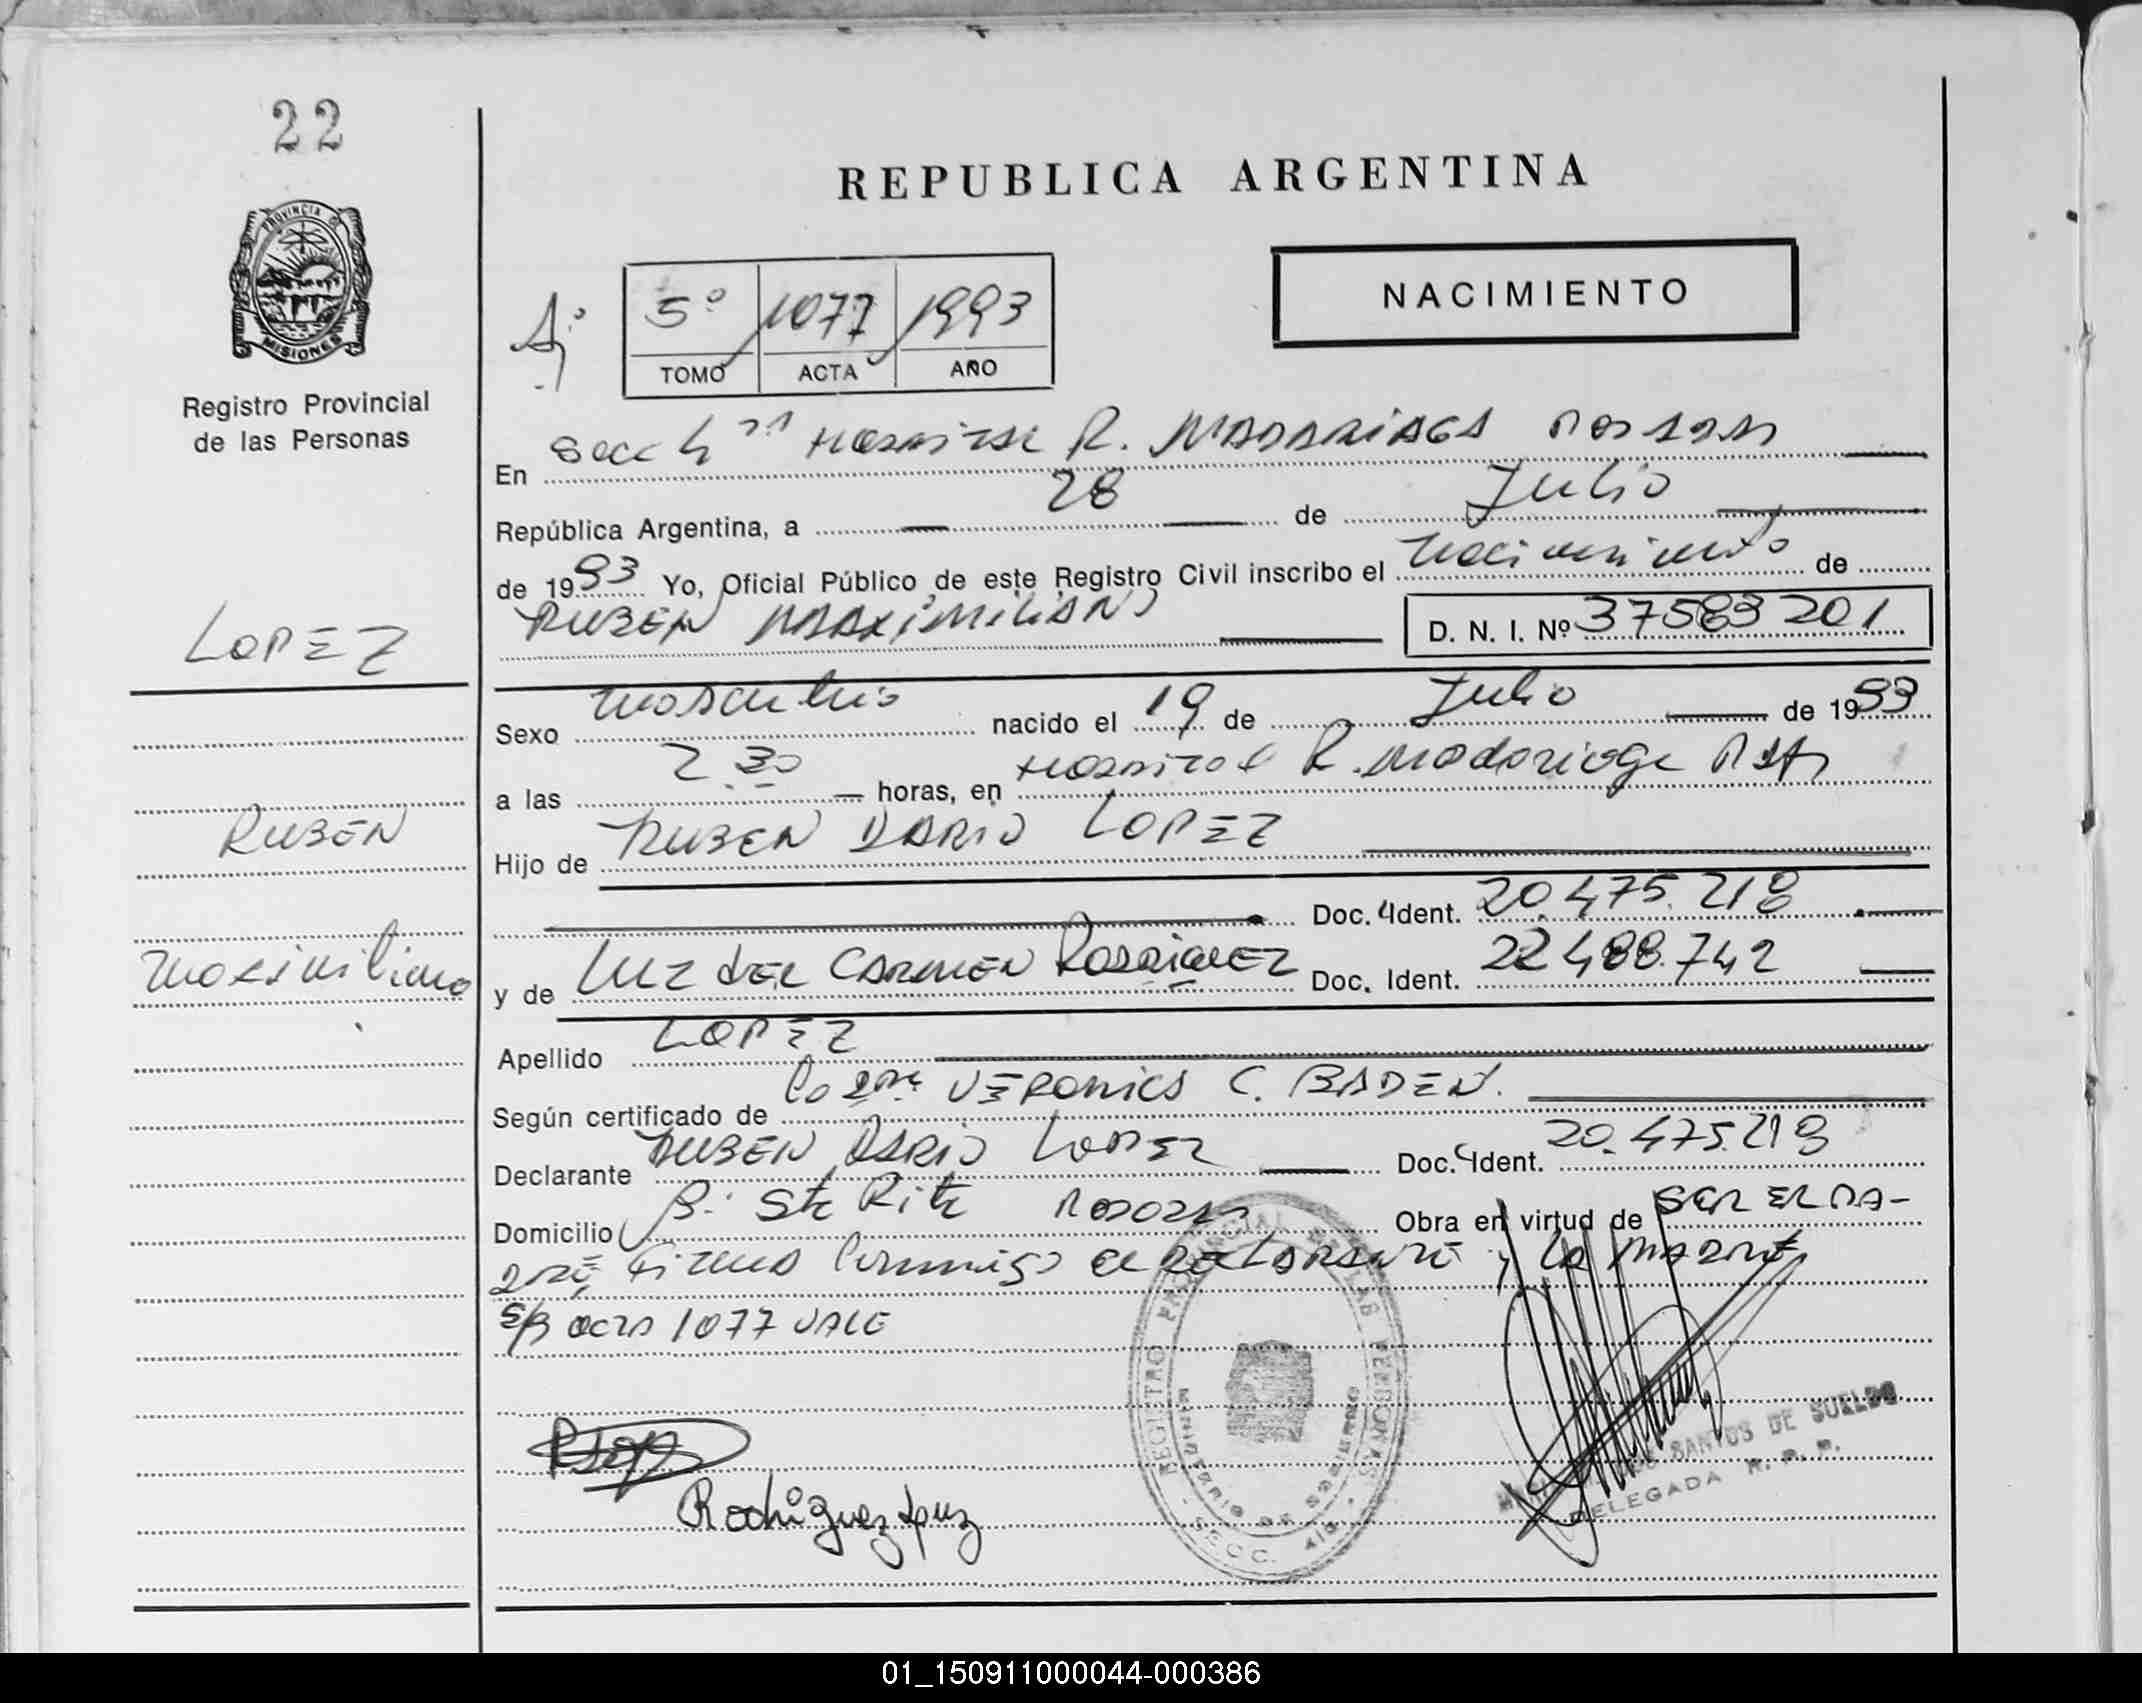 22
REPUBLICA ARGENTINA
PROVINCIA DE MISIONES
Registro Provincial
de las Personas
5º 1077 1993
TOMO ACTA AÑO
NACIMIENTO
En Secc 4ta Hospital R. MADARIAGA Posadas
República Argentina, a 28 de Julio
de 1993 Yo, Oficial Público de este Registro Civil inscribo el Nacimiento de
RUBEN MAXIMILIANO D. N. I. Nº 37583201
LOPEZ
Sexo Masculino nacido el 19 de Julio de 1993
a las 2 30 horas, en Hospital R. Madariaga Pdas
RUBEN
Hijo de RUBEN DARIO LOPEZ
Doc. Ident. 20.475.218
Maximiliano
y de LUZ DEL CARMEN RODRIGUEZ Doc. Ident. 22488.742
Apellido LOPEZ
Según certificado de VERONICA C. BADEN.
Declarante RUBEN DARIO LOPEZ Doc. Ident. 20.475.218
Domicilio B: Sta Rita Posadas Obra en virtud de SER EL PA-
DRE, Firma Conmigo el DECLARANTE y La MADRE
S/R acta 1077 VALE
Rodriguez Luz
REGISTRO PROVINCIAL DE LAS PERSONAS
MINISTERIO DE GOBIERNO
SECC. 4ta
SANTOS DE SUELDO
DELEGADA R. P. P.
01_150911000044-000386